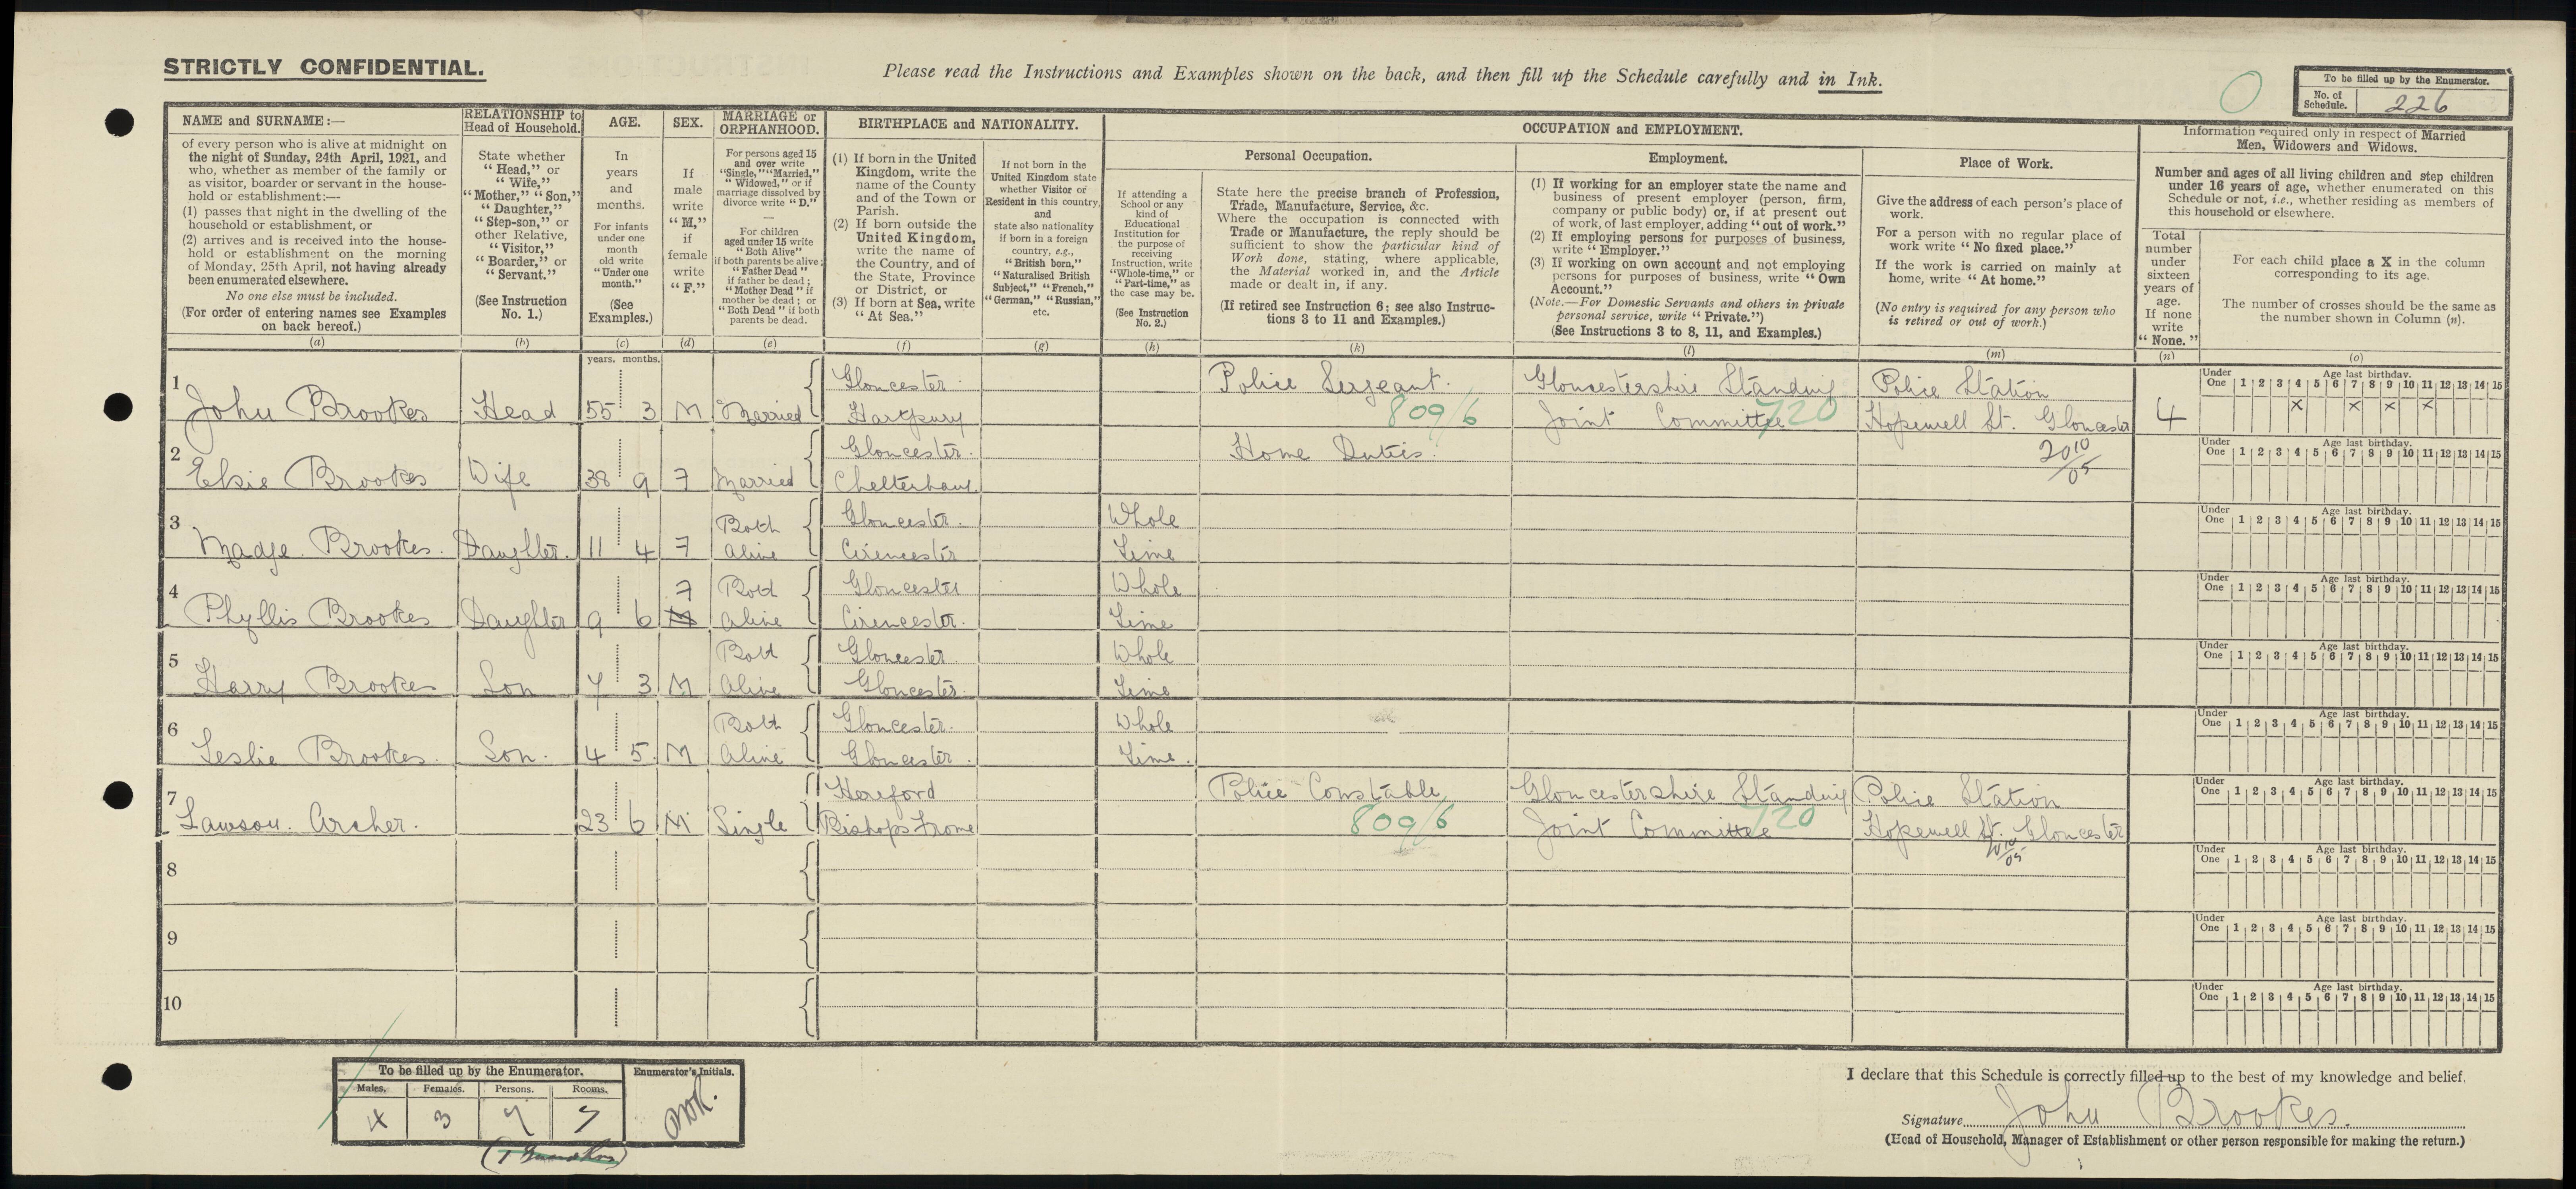 STRICTLY CONFIDENTIAL.
Please read the Instructions and Examples shown on the back, and then fill up the Schedule carefully and in Ink.
To be filled up by the Enumerator.
No. of Schedule. 226
NAME and SURNAME:—
of every person who is alive at midnight on
the night of Sunday, 24th April, 1921, and
who, whether as member of the family or
as visitor, boarder or servant in the house-
hold or establishment:—
(1) passes that night in the dwelling of the
household or establishment, or
(2) arrives and is received into the house-
hold or establishment on the morning
of Monday, 25th April, not having already
been enumerated elsewhere.
No one else must be included.
(For order of entering names see Examples
on back hereof.)
(a)
RELATIONSHIP to
Head of Household.
State whether
"Head," or
"Wife,"
"Mother," "Son,"
"Daughter,"
"Step-son," or
other Relative,
"Visitor,"
"Boarder," or
"Servant."
(See Instruction
No. 1.)
(b)
AGE.
In
years
and
months.
For infants
under one
month
old write
"Under one
month."
(See
Examples.)
(c)
years. months.
SEX.
If
male
write
"M,"
if
female
write
"F."
(d)
MARRIAGE or
ORPHANHOOD.
For persons aged 15
and over write
"Single," "Married,"
"Widowed," or if
marriage dissolved by
divorce write "D."
—
For children
aged under 15 write
"Both Alive"
if both parents be alive;
"Father Dead"
if father be dead;
"Mother Dead" if
mother be dead; or
"Both Dead" if both
parents be dead.
(e)
BIRTHPLACE and NATIONALITY.
(1) If born in the United
Kingdom, write the
name of the County
and of the Town or
Parish.
(2) If born outside the
United Kingdom,
write the name of
the Country, and of
the State, Province
or District, or
(3) If born at Sea, write
"At Sea."
(f)
If not born in the
United Kingdom state
whether Visitor or
Resident in this country,
and
state also nationality
if born in a foreign
country, e.g.,
"British born,"
"Naturalised British
Subject," "French,"
"German," "Russian,"
etc.
(g)
OCCUPATION and EMPLOYMENT.
If attending a
School or any
kind of
Educational
Institution for
the purpose of
receiving
Instruction, write
"Whole-time," or
"Part-time," as
the case may be.
(See Instruction
No. 2.)
(h)
Personal Occupation.
State here the precise branch of Profession,
Trade, Manufacture, Service, &c.
Where the occupation is connected with
Trade or Manufacture, the reply should be
sufficient to show the particular kind of
Work done, stating, where applicable,
the Material worked in, and the Article
made or dealt in, if any.
(If retired see Instruction 6; see also Instruc-
tions 3 to 11 and Examples.)
(k)
Employment.
(1) If working for an employer state the name and
business of present employer (person, firm,
company or public body) or, if at present out
of work, of last employer, adding "out of work."
(2) If employing persons for purposes of business,
write "Employer."
(3) If working on own account and not employing
persons for purposes of business, write "Own
Account."
(Note.—For Domestic Servants and others in private
personal service, write "Private.")
(See Instructions 3 to 8, 11, and Examples.)
(l)
Place of Work.
Give the address of each person's place of
work.
For a person with no regular place of
work write "No fixed place."
If the work is carried on mainly at
home, write "At home."
(No entry is required for any person who
is retired or out of work.)
(m)
Information required only in respect of Married
Men, Widowers and Widows.
Number and ages of all living children and step children
under 16 years of age, whether enumerated on this
Schedule or not, i.e., whether residing as members of
this household or elsewhere.
Total
number
under
sixteen
years of
age.
If none
write
"None."
(n)
For each child place a X in the column
corresponding to its age.
The number of crosses should be the same as
the number shown in Column (n).
(o)
1 John Brookes Head 55 3 M Married Gloucester. Hartpury Police Sergeant. 809/6 Gloucestershire Standing Joint Committee 720 Police Station Hopewell St. Gloucester 4
Under One 1 2 3 4 5 6 7 8 9 10 11 12 13 14 15 Age last birthday.
X X X X
2 Elsie Brookes Wife 38 9 F Married Gloucester. Cheltenham. Home Duties. 2010/05
Under One 1 2 3 4 5 6 7 8 9 10 11 12 13 14 15 Age last birthday.
3 Madge Brookes. Daughter. 11 4 F Both Alive Gloucester. Cirencester Whole Time
Under One 1 2 3 4 5 6 7 8 9 10 11 12 13 14 15 Age last birthday.
4 Phyllis Brookes Daughter 9 6 F M Both Alive Gloucester Cirencester. Whole Time
Under One 1 2 3 4 5 6 7 8 9 10 11 12 13 14 15 Age last birthday.
5 Harry Brookes Son 7 3 M Both Alive Gloucester. Gloucester. Whole Time
Under One 1 2 3 4 5 6 7 8 9 10 11 12 13 14 15 Age last birthday.
6 Leslie Brookes. Son. 4 5 M Both Alive Gloucester. Gloucester. Whole Time.
Under One 1 2 3 4 5 6 7 8 9 10 11 12 13 14 15 Age last birthday.
7 Lawson. Archer. 23 6 M Single Hereford Bishops Frome Police Constable 809/6 Gloucestershire Standing Joint Committee 720 Police Station Hopewell St. Gloucester
Under One 1 2 3 4 5 6 7 8 9 10 11 12 13 14 15 Age last birthday.
8
Under One 1 2 3 4 5 6 7 8 9 10 11 12 13 14 15 Age last birthday.
9
Under One 1 2 3 4 5 6 7 8 9 10 11 12 13 14 15 Age last birthday.
10
Under One 1 2 3 4 5 6 7 8 9 10 11 12 13 14 15 Age last birthday.
To be filled up by the Enumerator.
Males. Females. Persons. Rooms.
4 3 7 7
Enumerator's Initials.
I declare that this Schedule is correctly filled up to the best of my knowledge and belief.
Signature John Brookes.
(Head of Household, Manager of Establishment or other person responsible for making the return.)